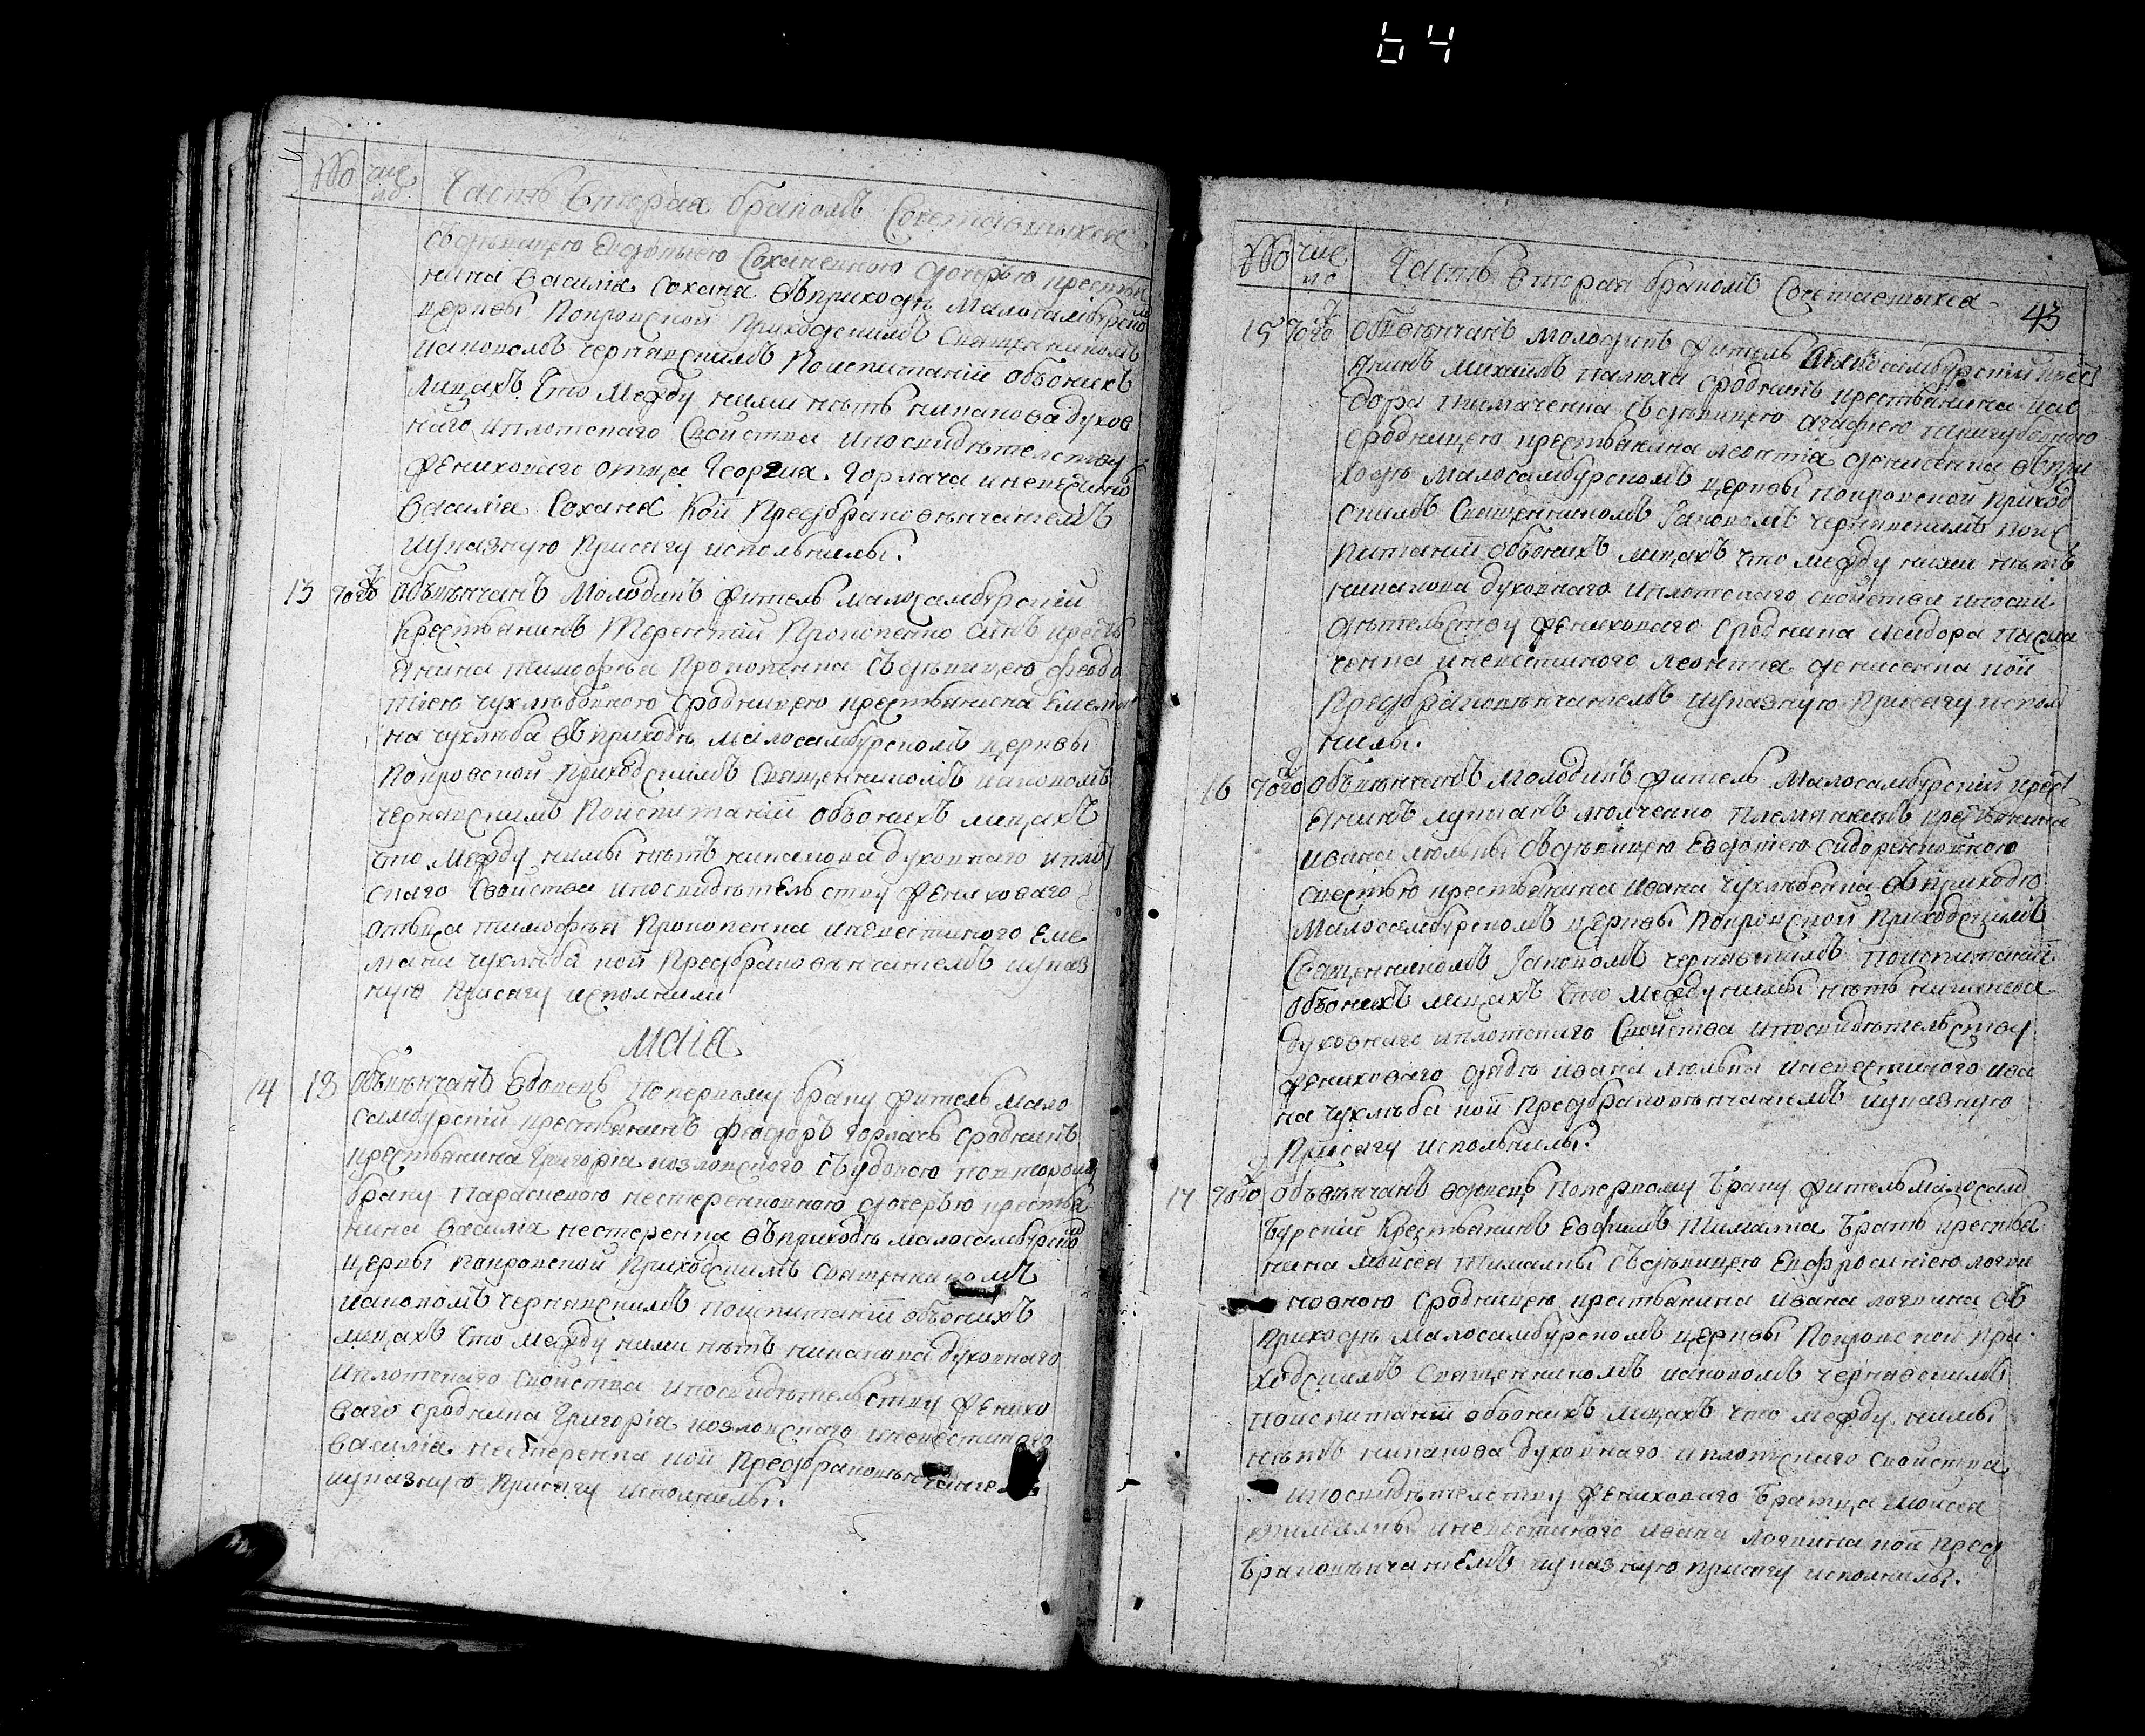 64
Число
Часть вторая бракомъ Сочетавшихся
съ дѣвицею Евдокиею Соханенкою дочерью крестья
нина Василія Сохана въ приходѣ Малосамбурском
церквы Покровской Приходскимъ Священикомъ
Иаковомъ Чернявскимъ По испитаніи обьоихъ
лицахъ Что Между ними нѣтъ никакова духов
наго и плотскаго Свойства и по свидѣтелству
жениховаго отца Георгия Горлача и невѣстино
Василія Сохана Кой Пред браковѣнчаніемъ
и указную Присягу исполнилы.
13 того Обвѣнчанъ Молодикъ житель малосамбурскій
Крестьянинъ Терентій Прокопенко Синъ крестъ
янина Тимофѣа Прокопенка съ дѣвицею Феодо
тіею Чухлѣбовною сродницею крестьянина Емелья
на Чухлѣба въ приходѣ малосамбурскомъ церквы
Покровской Приходскимъ Священникомъ Иаковомъ
Чернявскимъ По испитаніи обьоихъ лицахъ
что между нимы нѣтъ никакова духовнаго и плот
скаго Свойства и по свидѣтельству жениховаго
отьца Тимофѣя Прокопенка и невестиного Еме
льяна Чухлѣба кой Пред браковѣнчаніемъ и указ
ную Присягу исполнили
Маіа
14 18 Обвѣнчанъ вдовецъ по первому браку житель мало
самбурскій крестьянинъ Феодоръ Горлачъ сродникъ
крестьянина Григорія Козловского съ удовою по второму
браку Параскевою Нестеренковною дочерью крестья
нина Василія Нестеренка въ приходѣ малосамбурском
церквы Покровской Приходскимъ Священикомъ
Иаковомъ Чернявскимъ По испитаніи обьоихъ
лицахъ Что между ними нѣтъ никакова духовнаго
и плотскаго Свойства и по свидѣтельству женихо
ваго сродника Григорія Козловскаго и невестиного
Василія Нестеренка кой Пред браковѣнчаніемъ
и указную Присягу исполнилы.
Число
Часть вторая бракомъ Сочетавшихся
43
15 того Обвѣнчанъ молодикъ житель Малосамбурскій крест
янинъ Михаилъ Палюха сродникъ крестьянина Иси
дора Тимаченка съ дѣвицею Агафиею
сродницею крестьянина Леонтіа Денисенка въ при
ходѣ Малосамбурскомъ церквы Покровской Приход
скимъ Священникомъ Іаковомъ Чернявскимъ По ис
питаніи обьоихъ лицахъ что между ними нѣтъ
никакова духовнаго и плотскаго свойства и по сви
дѣтельству жениховаго сродника Исидора Тима
ченка и невестиного Леонтіа Денисенка кой
Пред браковѣнчаніемъ и указную Присягу испол
нилы.
16 того Обвѣнчанъ молодикъ житель Малосамбурскій крест
янинъ Лукіанъ Молченко племянникъ крестьянина
Ивана Люльки съ дѣвицею Евдотіею Сидоренковною
свестью крестьянина Ивана Чухлѣбенка въ приходѣ
Малосамбурскомъ церквы Покровской Приходскимъ
Священникомъ Іаковомъ Чернявскимъ По испитаніи
обьоихъ лицахъ Что между нимы нѣтъ никакова
духовнаго и плотскаго Свойства и по свидѣтельству
жениховаго дядѣ Ивана Люльки и невестиного Ива
на Чухлѣба кой Пред браковѣнчаніемъ и указную
Присягу исполнилы.
17 того Обвѣнчанъ вдовецъ По первому браку житель малосам
бурскій Крестьянинъ Евфимъ Шимата братъ крестья
нина Моисея Шиматы съ дѣвицею Евфросиніею Логви
новною сродницею крестьянина Ивана Логвина въ
Приходѣ Малосамбурскомъ церквы Покровской При
ходскимъ Священникомъ Иаковомъ Чернявскимъ
По испитаніи обьоихъ лицахъ что между нимы
нѣтъ никакова духовнаго и плотскаго свойства
и по свидѣтелству жениховаго братца Моисея
Шиматы и невестиного Ивана Логвина кой Пред
браковѣнчаніемъ и указную Присягу исполнилы.